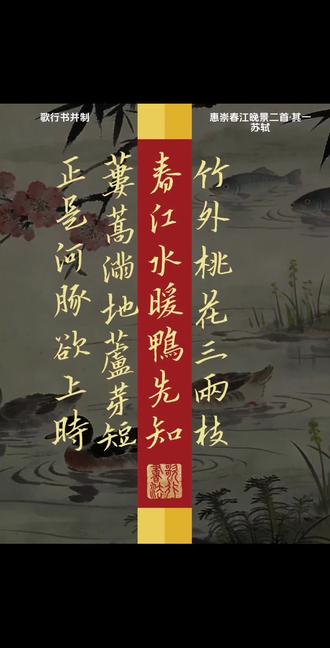 惠崇春江晚景二首·其一
苏轼
竹外桃花三兩枝
春江水暖鴨先知
蔞蒿滿地蘆芽短
正是河豚欲上時
歌行书并制